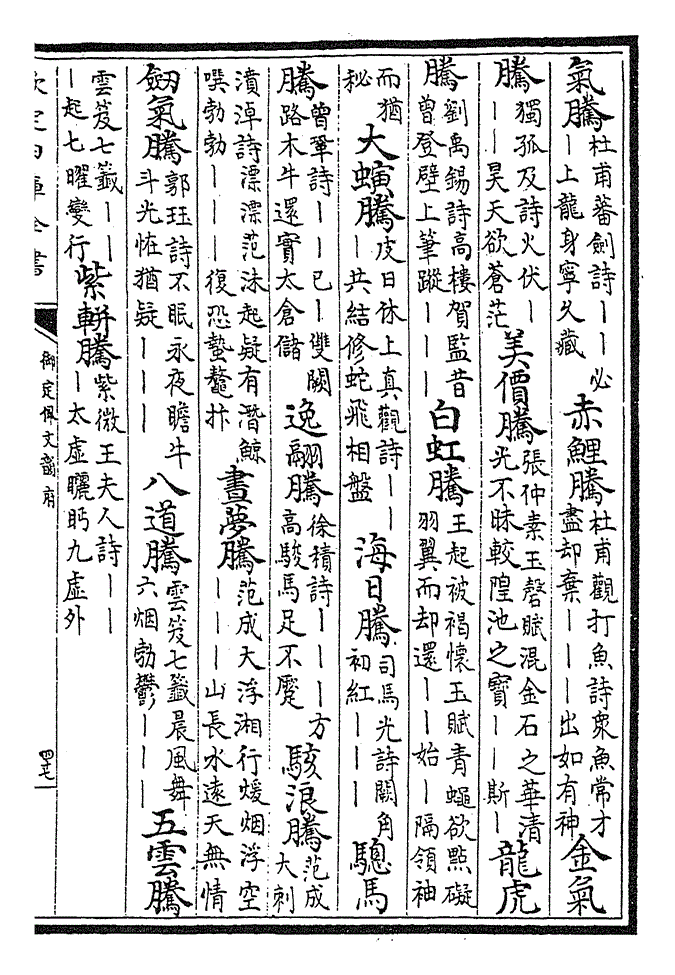 氣騰 杜甫蕃劍詩｜｜必｜上龍身寧久藏 赤鯉騰 杜甫觀打魚詩衆魚常才盡却棄｜｜｜出如有神 金氣
騰 獨孤及詩火伏｜｜｜昊天欲蒼茫 美價騰 張仲素玉磬賦混金石之華清光不昧較隍池之寶｜｜斯｜ 龍虎
騰 劉禹錫詩高樓賀監昔曾登壁上筆蹤｜｜｜ 白虹騰 王起被褐懷玉賦青蠅欲點礙羽翼而却還｜｜始｜隔領袖
而猶秘 大螾騰 皮日休上真觀詩｜｜｜共結修蛇飛相盤 海日騰 司馬光詩闕角初紅｜｜｜ 驄馬
騰 曾鞏詩｜｜已｜雙闕路木牛還實太倉儲 逸翮騰 徐積詩｜｜｜方高駿馬足不蹙 駭浪騰 范成大刺
濆淖詩漂漂范沫起疑有潛鯨噀勃勃｜｜｜復恐蟄鼇抃 晝夢騰 范成大浮湘行煖烟浮空｜｜｜山長水遠天無情
劒氣騰 郭珏詩不眠永夜瞻牛斗光怪猶疑｜｜｜ 八道騰 雲笈七籤晨風舞六烟勃鬱｜｜｜ 五雲騰
雲笈七籤｜｜｜起七曜變行 紫軿騰 紫微王夫人詩｜｜｜太虛矖眄九虛外
欽定四庫全書
御定佩文韻府